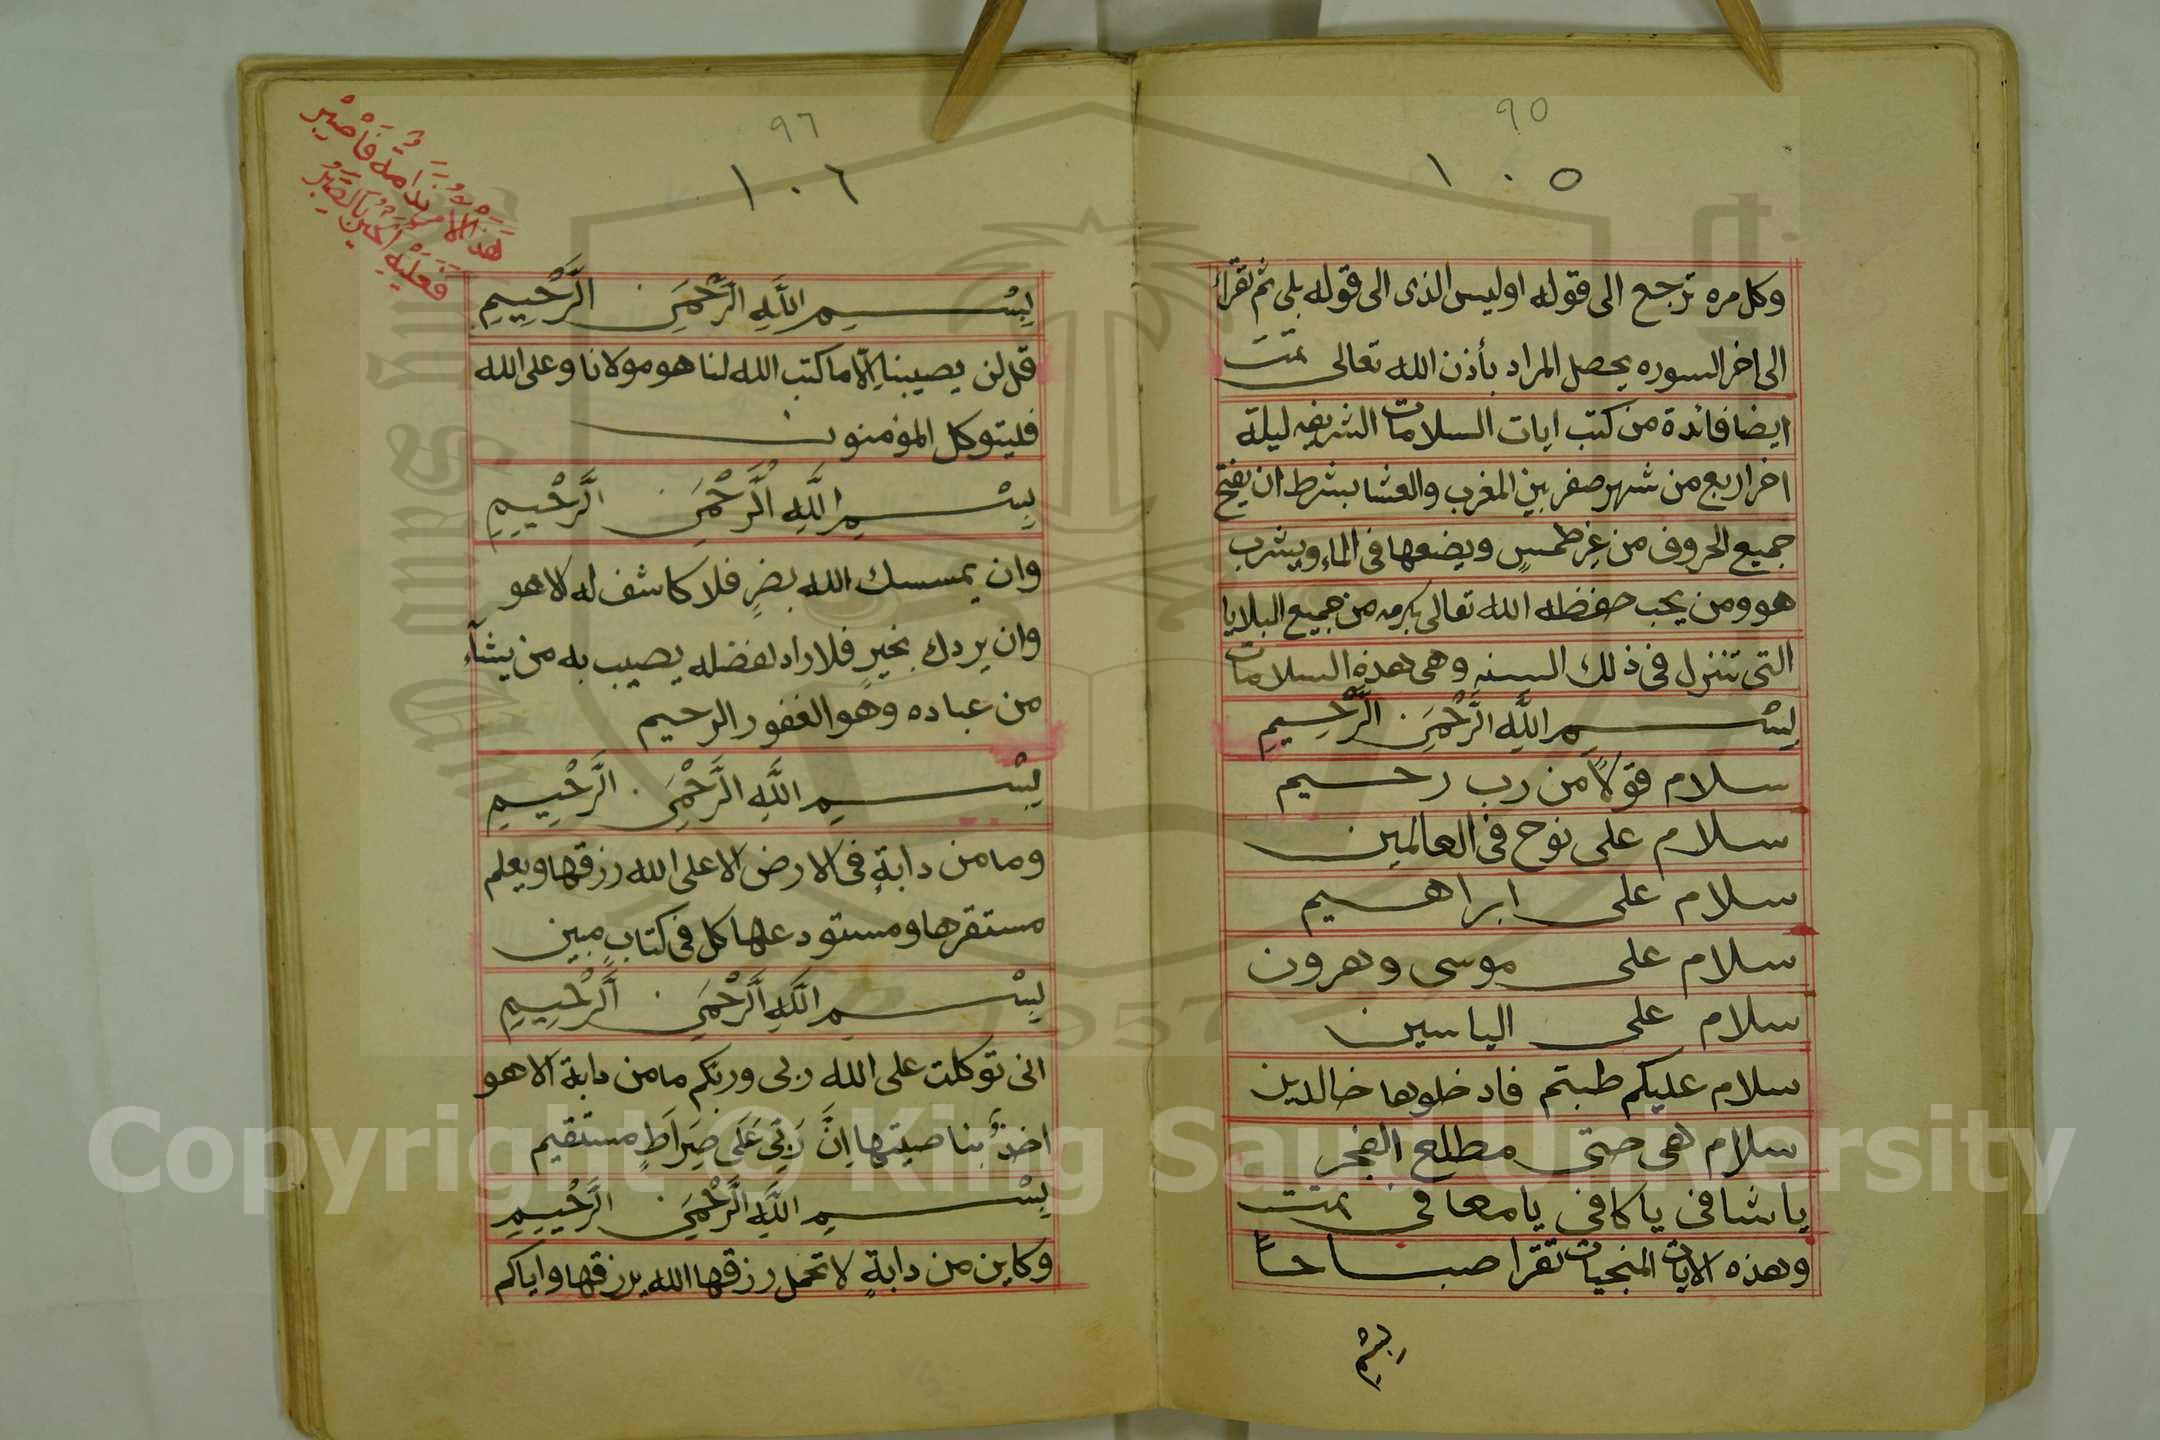 ٩٥
١٠٥
وكل مره ترجع الى قوله اوليس الذى الى قوله بلى ثم تقرأ
الى اخر السوره يحصل المراد بأذن الله تعالى تمت
ايضا فائدة من كتب ايات السلامات الشريفه ليلة
اخر اربع من شهر صفر بين المغرب والعشا بشرط ان يفتح
جميع الحروف من غير طمسٍ ويضعها فى الماء ويشرب
هو ومن يحب حفظه الله تعالى بكرمه من جميع البلايا
التى تنزل فى ذلك السنه وهى هذه السلامات
بِسْمِ اللَّهِ الرَّحْمَنِ الرَّحِيمِ
سلام قولاً من رب رحيم
سلام على نوح فى العالمين
سلام على ابراهيم
سلام على موسى وهرون
سلام على الياسين
سلام عليكم طبتم فادخلوها خالدين
سلام هى حتى مطلع الفجر
يا شافى يا كافى يا معافى تمت
وهذه الايات المنجيات تقرا صباحاً
بسم
٩٦
١٠٦
هَذَا الأَمْرُ نَدَامَةٌ فَاصْبِرْ
فَعَلَيْهِ بِالصَّبْرُ
بِسْمِ اللَّهِ الرَّحْمَنِ الرَّحِيمِ
قل لن يصيبنا الّا ما كتب الله لنا هو مولانا وعلى الله
فليتوكل المؤمنون
بِسْمِ اللَّهِ الرَّحْمَنِ الرَّحِيمِ
وان يمسسك الله بضرٍ فلا كاشف له الا هو
وان يردك بخيرٍ فلا راد لفضله يصيب به من يشآء
من عباده وهو الغفور الرحيم
بِسْمِ اللَّهِ الرَّحْمَنِ الرَّحِيمِ
وما من دابةٍ فى الارض الا على الله رزقها ويعلم
مستقرها ومستودعها كل فى كتابٍ مبين
بِسْمِ اللَّهِ الرَّحْمَنِ الرَّحِيمِ
انى توكلت على الله ربى وربكم ما من دابة الا هو
اخذٌ بناصيتها اِنَّ رَبِّى عَلَى صِرَاطٍ مستقيم
بِسْمِ اللَّهِ الرَّحْمَنِ الرَّحِيمِ
وكاين من دابةٍ لا تحمل رزقها الله يرزقها واياكم
1957
Copyright © King Saud University